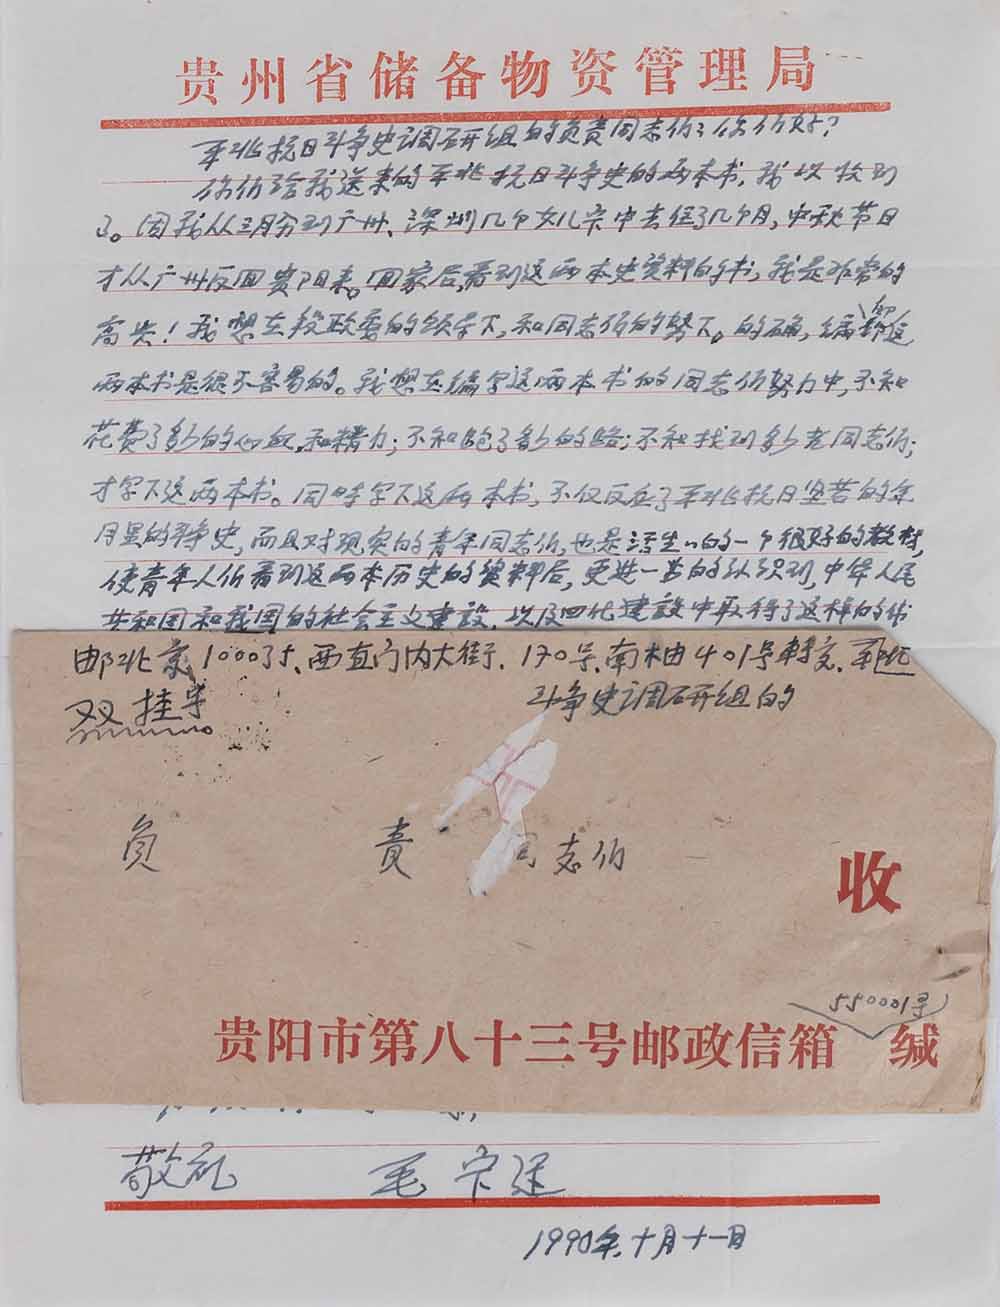 贵州省储备物资管理局
平北抗日斗争史调研组的负责同志们：你们好？
你们给我送来的平北抗日斗争史的两本书，我以收到
了。因我从三月分到广州、深圳几个女儿家中去住了几个月，中秋节日
才从广州反回贵阳来。回家后，看到这两本史资料的书，我是非常的
高兴！我想在段政委的领导下，和同志们的努下。的确，编
两本书是很不容易的。我想在编写这两本书的同志们努力中，不知
花费了多少的心血，和精力；不知跑了多少的路；不知找到多少老同志们；
才写下这两本书。同时写下这两本书，不仅反应了平北抗日坚苦的年
月里的斗争史，而且对现实的青年同志们，也是活生々的一个很好的教材，
使青年人们看到这两本历史的资料后，更进一步的认识到，中华人民
共和国和我国的社会主义建设，以及四化建設中取得了这样的伟
邮北京100035、西直门内大街、170号、南柚401号轉交、平北
斗争史调研组的
双挂号
负 责 同志们
收
550001号
贵阳市第八十三号邮政信箱 缄
敬礼 毛 宗
1990年、十月十一日